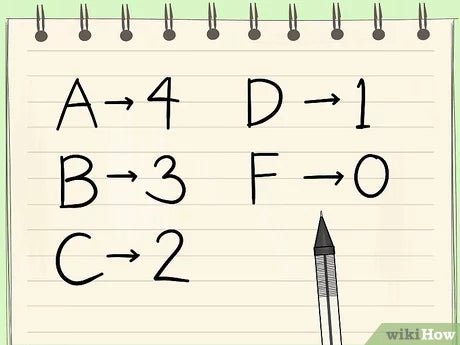 A → 4
B → 3
C → 2
D → 1
F → 0
wikiHow